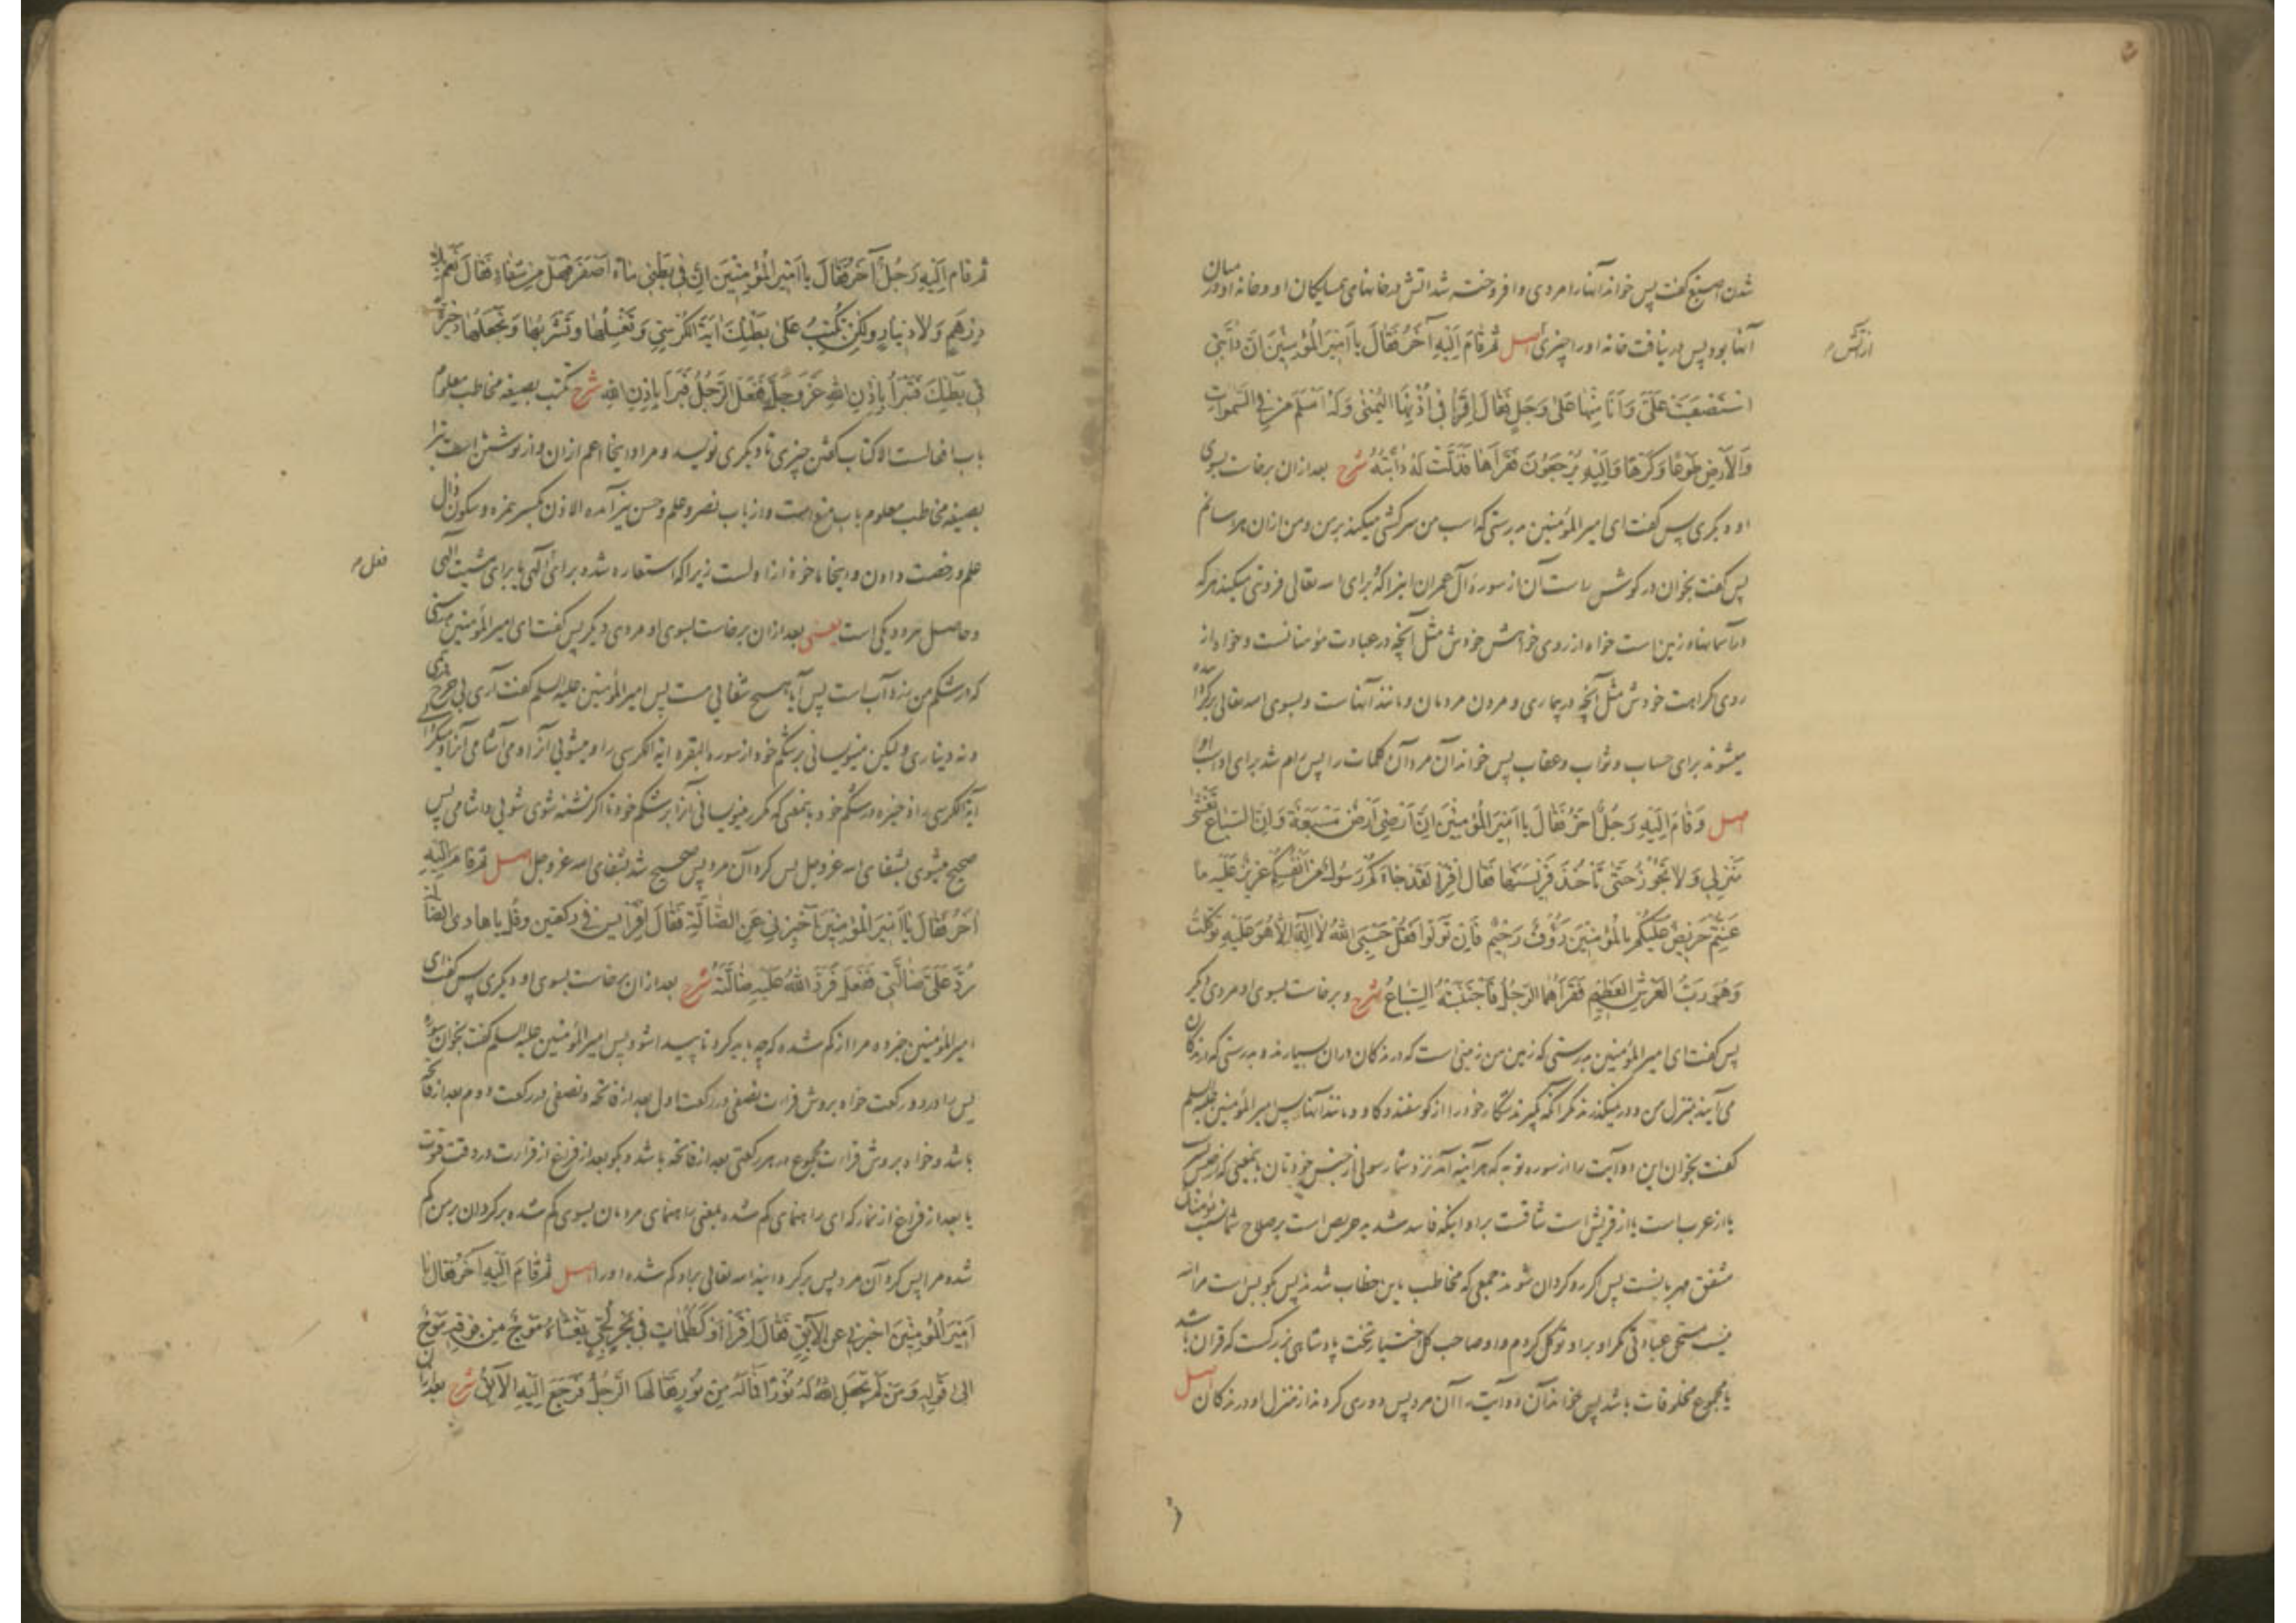 شدن اصبغ گفت پس خواند آنها را مردی و افروخته شد آتش در خانهای همسایگان او و خانه او در میان
آنها بود پس در نیافت خانه او را چیزی اصل ثُمَّ قَامَ اِلَیْهِ آخَرُ فَقَالَ یا اَمیرَ الْمُؤْمِنینَ اِنَّ دابَّتی
از آتش م
اسْتَصْعَبَتْ عَلَیَّ وَ اَنَا مِنْها عَلی وَجَلٍ فَقالَ اقْرَأْ فی اُذُنِهَا الْیُمْنی وَ لَهُ اَسْلَمَ مَنْ فِی السَّمواتِ
وَ الْاَرْضِ طَوْعًا وَ کَرْهًا وَ اِلَیْهِ یُرْجَعُونَ فَقَرَأَها فَذَلَّتْ لَهُ دابَّتُهُ شرح بعد از آن برخاست بسوی
او دیگری پس گفت ای امیر المؤمنین بدرستی که اسب من سرکشی میکند بر من و من از آن هراسانم
پس گفت بخوان در گوش راست آن از سوره آل عمران اینرا که برای الله تعالی فروتنی میکند هر که
در آسمانها و زمین است خواه از روی خواهش خودش مثل آنچه در عبادت مؤمنانست و خواه از
روی کراهت خودش مثل آنچه در بیماری و مردن مردمان و مانند آنهاست و بسوی الله تعالی برگردانیده
میشوند برای حساب و ثواب و عقاب پس خواند آن مرد آن کلمات را پس رام شد برای او اسب او
اصل وَ قامَ اِلَیْهِ رَجُلٌ آخَرُ فَقالَ یا اَمیرَ الْمُؤْمِنینَ اِنَّ اَرْضی اَرْضٌ مَسْبَعَةٌ وَ اِنَّ السِّباعَ تَغْشی
مَنْزِلی وَ لا تَجُوزُ حَتّی تَأْخُذَ فَریسَتَها فَقالَ اقْرَأْ لَقَدْ جاءَکُمْ رَسُولٌ مِنْ اَنْفُسِکُمْ عَزیزٌ عَلَیْهِ ما
عَنِتُّمْ حَریصٌ عَلَیْکُمْ بِالْمُؤْمِنینَ رَؤُفٌ رَحیمٌ فَاِنْ تَوَلَّوْا فَقُلْ حَسْبِیَ اللهُ لا اِلهَ اِلّا هُوَ عَلَیْهِ تَوَکَّلْتُ
وَ هُوَ رَبُّ الْعَرْشِ الْعَظیمِ فَقَرَأَهُمَا الرَّجُلُ فَاجْتَنَبَتْهُ السِّباعُ شرح و برخاست بسوی او مردی دیگر
پس گفت ای امیر المؤمنین بدرستی که زمین من زمینی است که درندگان در آن بسیارند و بدرستی که درندگان
می آیند بمنزل من و در نمیگذرند مگر آنکه گیرند شکار خود را از گوسفند و گاو و مانند آنها پس امیر المؤمنین علیه السلم
گفت بخوان این دو آیت را از سوره توبه که هر آینه آمد نزد شما رسولی از جنس خودتان بمعنی که از جنس بشر
یا از عرب است یا از قریش است شاقست بر او اینکه فاسد شدید حریص است بر صلاح شما بمؤمنان
مشفق مهربانست پس اگر روگردان شوند جمعی که مخاطب باین خطاب شدند پس بگو بس است مرا الله
نیست مستحق عبادتی مگر او بر او توکل کردم و او صاحب کل اختیار تخت پادشاهی بزرگست که قرآن باشد
یا مجموع مخلوقات باشد پس خواند آن دو آیت را آن مرد پس دوری کردند از منزل او درندگان اصل
ثُمَّ قامَ اِلَیْهِ رَجُلٌ آخَرُ فَقالَ یا اَمیرَ الْمُؤْمِنینَ اِنَّ فی بَطْنی ماءً اَصْفَرَ فَهَلْ مِنْ شِفاءٍ فَقالَ نَعَمْ بِلا
دِرْهَمٍ وَ لا دینارٍ وَ لکِنْ تُکْتِبُ عَلی بَطْنِکَ آیَةَ الْکُرْسِیِّ وَ تَغْسِلُها وَ تَشْرَبُها وَ تَجْعَلُها ذَخیرَةً
فی بَطْنِکَ فَتَبْرَأُ بِاِذْنِ اللهِ عَزَّ وَ جَلَّ فَفَعَلَ الرَّجُلُ فَبَرَأَ بِاِذْنِ اللهِ شرح تکتب بصیغه مخاطب معلوم
باب افعالست الاکتاب گفتن چیزی تا دیگری نویسد و مراد اینجا اعم از آن و از نوشتن است تبرا
بصیغه مخاطب معلوم باب منع است و از باب نصر و علم و حسن نیز آمده الاذن بکسر همزه و سکون ذال
علم و رخصت دادن و اینجا ماخوذ از اولست زیرا که استعاره شده برای الهی یا برای مشیت الهی
فعل م
و حاصل هر دو یکی است یعنی بعد از آن برخاست بسوی او مردی دیگر پس گفت ای امیر المؤمنین بدرستی
که در شکم من زرد آب است پس آیا هیچ شفایی هست پس امیر المؤمنین علیه السلم گفت آری بی خرج درمی
و نه دیناری و لیکن مینویسانی بر شکم خود از سوره البقره آیة الکرسی را و میشویی آنرا و می آشامی آنرا و میگردانی
آیة الکرسی را ذخیره در شکم خود بمعنی که مکرر مینویسانی آنرا بر شکم خود تا اگر تشنه شوی شویی و آشامی پس
صحیح میشوی بشفای الله عز و جل پس کرد آن مرد پس صحیح شد بشفای الله عز و جل اصل ثُمَّ قامَ اِلَیْهِ
آخَرُ فَقالَ یا اَمیرَ الْمُؤْمِنینَ اَخْبِرْنی عَنِ الضّالَّةِ فَقالَ اقْرَأْ یس فی رکعتین وَ قُلْ یا هادی الضّالَّةِ
رُدَّ عَلَیَّ ضالَّتی فَفَعَلَ فَرَدَّ اللهُ عَلَیْهِ ضالَّتَهُ شرح بعد از آن برخاست بسوی او دیگری پس گفت ای
امیر المؤمنین خبر ده مرا از گم شده که چه باید کرد تا پیدا شود پس امیر المؤمنین علیه السلم گفت بخوان سوره
یس را در دو رکعت خواه بروش قرائت نصفی در رکعت اول بعد از فاتحه و نصفی در رکعت دوم بعد از فاتحه
باشد و خواه بروش قرائت مجموع در هر رکعتی بعد از فاتحه باشد و بگو بعد از فراغ از قرائت در وقت قنوت
یا بعد از فراغ از نماز که ای راهنمای گم شده بمعنی راهنمای مردمان بسوی گم شده برگردان بر من گم
شده مرا پس کرد آن مرد پس برگردانید الله تعالی بر او گم شده او را اصل ثُمَّ قامَ اِلَیْهِ آخَرُ فَقالَ یا
اَمیرَ الْمُؤْمِنینَ اَخْبِرْنی عَنِ الْآبِقِ فَقالَ اقْرَأْ اَوْ کَظُلُماتٍ فی بَحْرٍ لُجِّیٍّ یَغْشاهُ مَوْجٌ مِنْ فَوْقِهِ مَوْجٌ
اِلی قَوْلِهِ وَ مَنْ لَمْ یَجْعَلِ اللهُ لَهُ نُورًا فَما لَهُ مِنْ نُورٍ فَقالَهَا الرَّجُلُ فَرَجَعَ اِلَیْهِ الْآبِقُ شرح بعد از آن